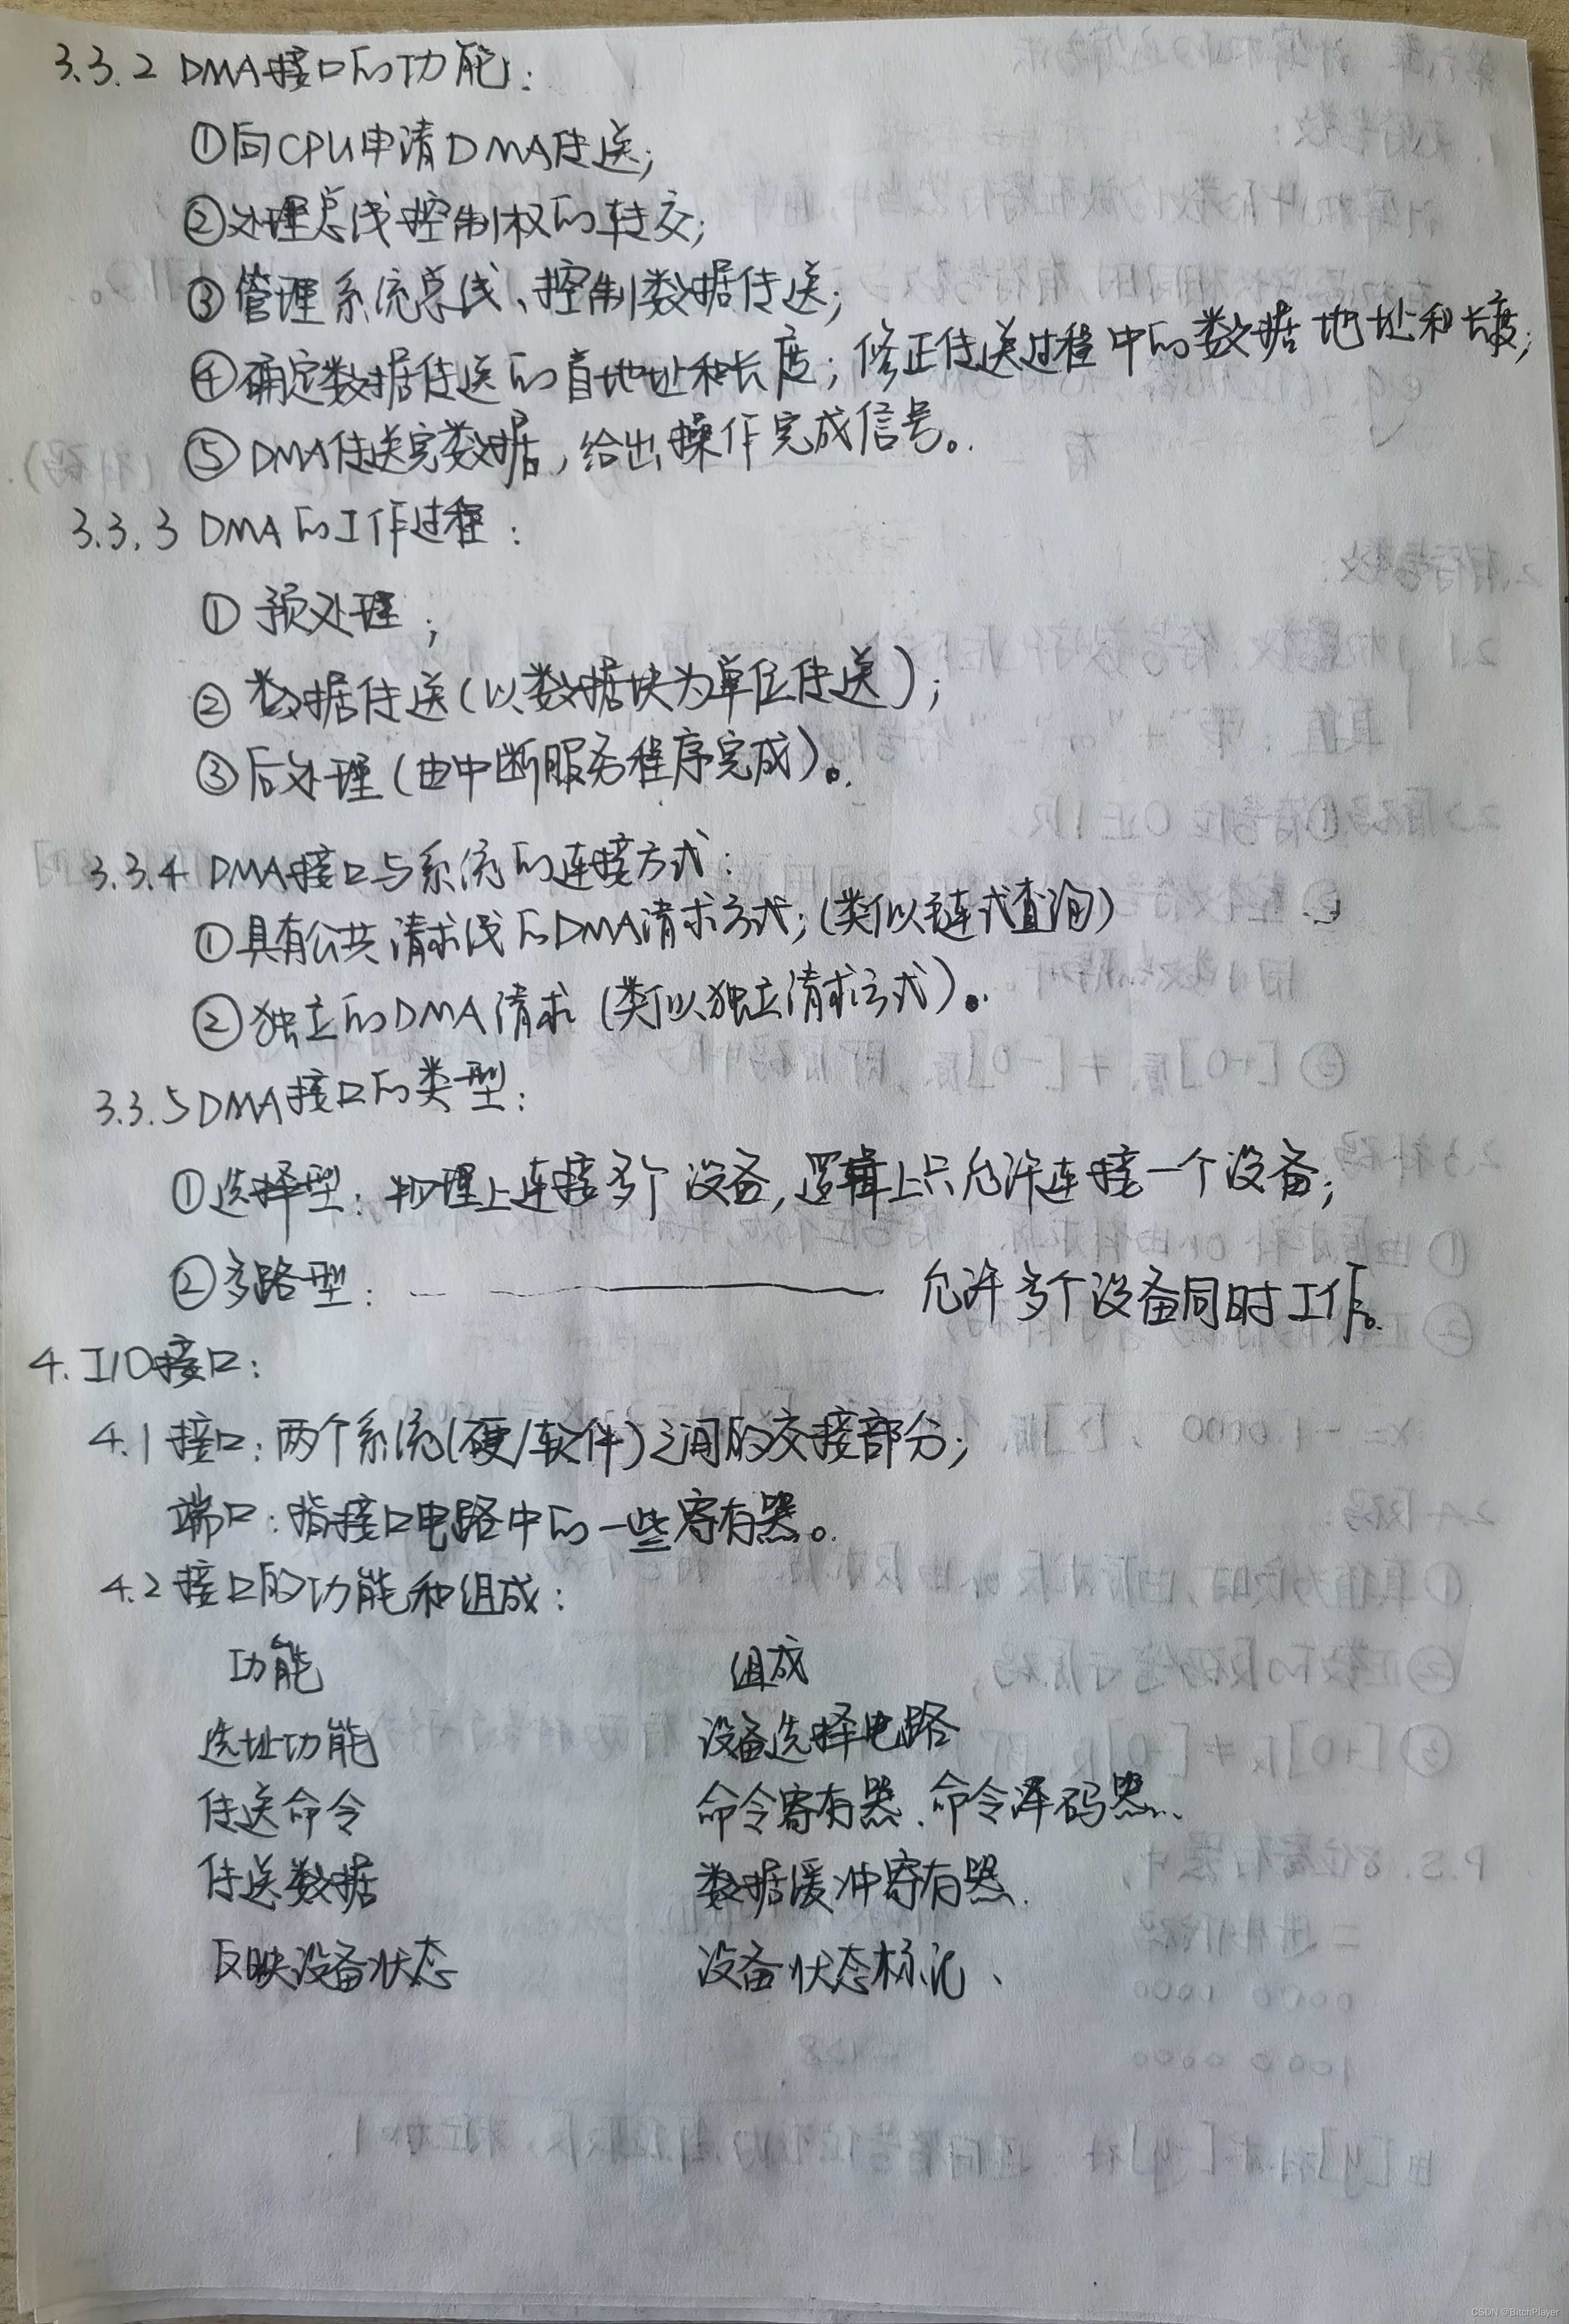 3.3.2 DMA接口的功能:
①向CPU申请DMA传送;
②处理总线控制权的转交;
③管理系统总线、控制数据传送;
④确定数据传送的首地址和长度;修正传送过程中的数据地址和长度;
⑤DMA传送完数据,给出操作完成信号。
3.3.3 DMA的工作过程:
①预处理;
②数据传送(以数据块为单位传送);
③后处理(由中断服务程序完成)。
3.3.4 DMA接口与系统的连接方式:
①具有公共请求线的DMA请求方式;(类似链式查询)
②独立的DMA请求(类似独立请求方式)。
3.3.5 DMA接口的类型:
①选择型:物理上连接多个设备,逻辑上只允许连接一个设备;
②多路型:—————— 允许多个设备同时工作。
4. I/O接口:
4.1 接口:两个系统(硬/软件)之间的交接部分;
端口:指接口电路中的一些寄存器。
4.2 接口的功能和组成:
功能 组成
选址功能 设备选择电路
传送命令 命令寄存器、命令译码器、
传送数据 数据缓冲寄存器.
反映设备状态 设备状态标记、
CSDN @BitchPlayer